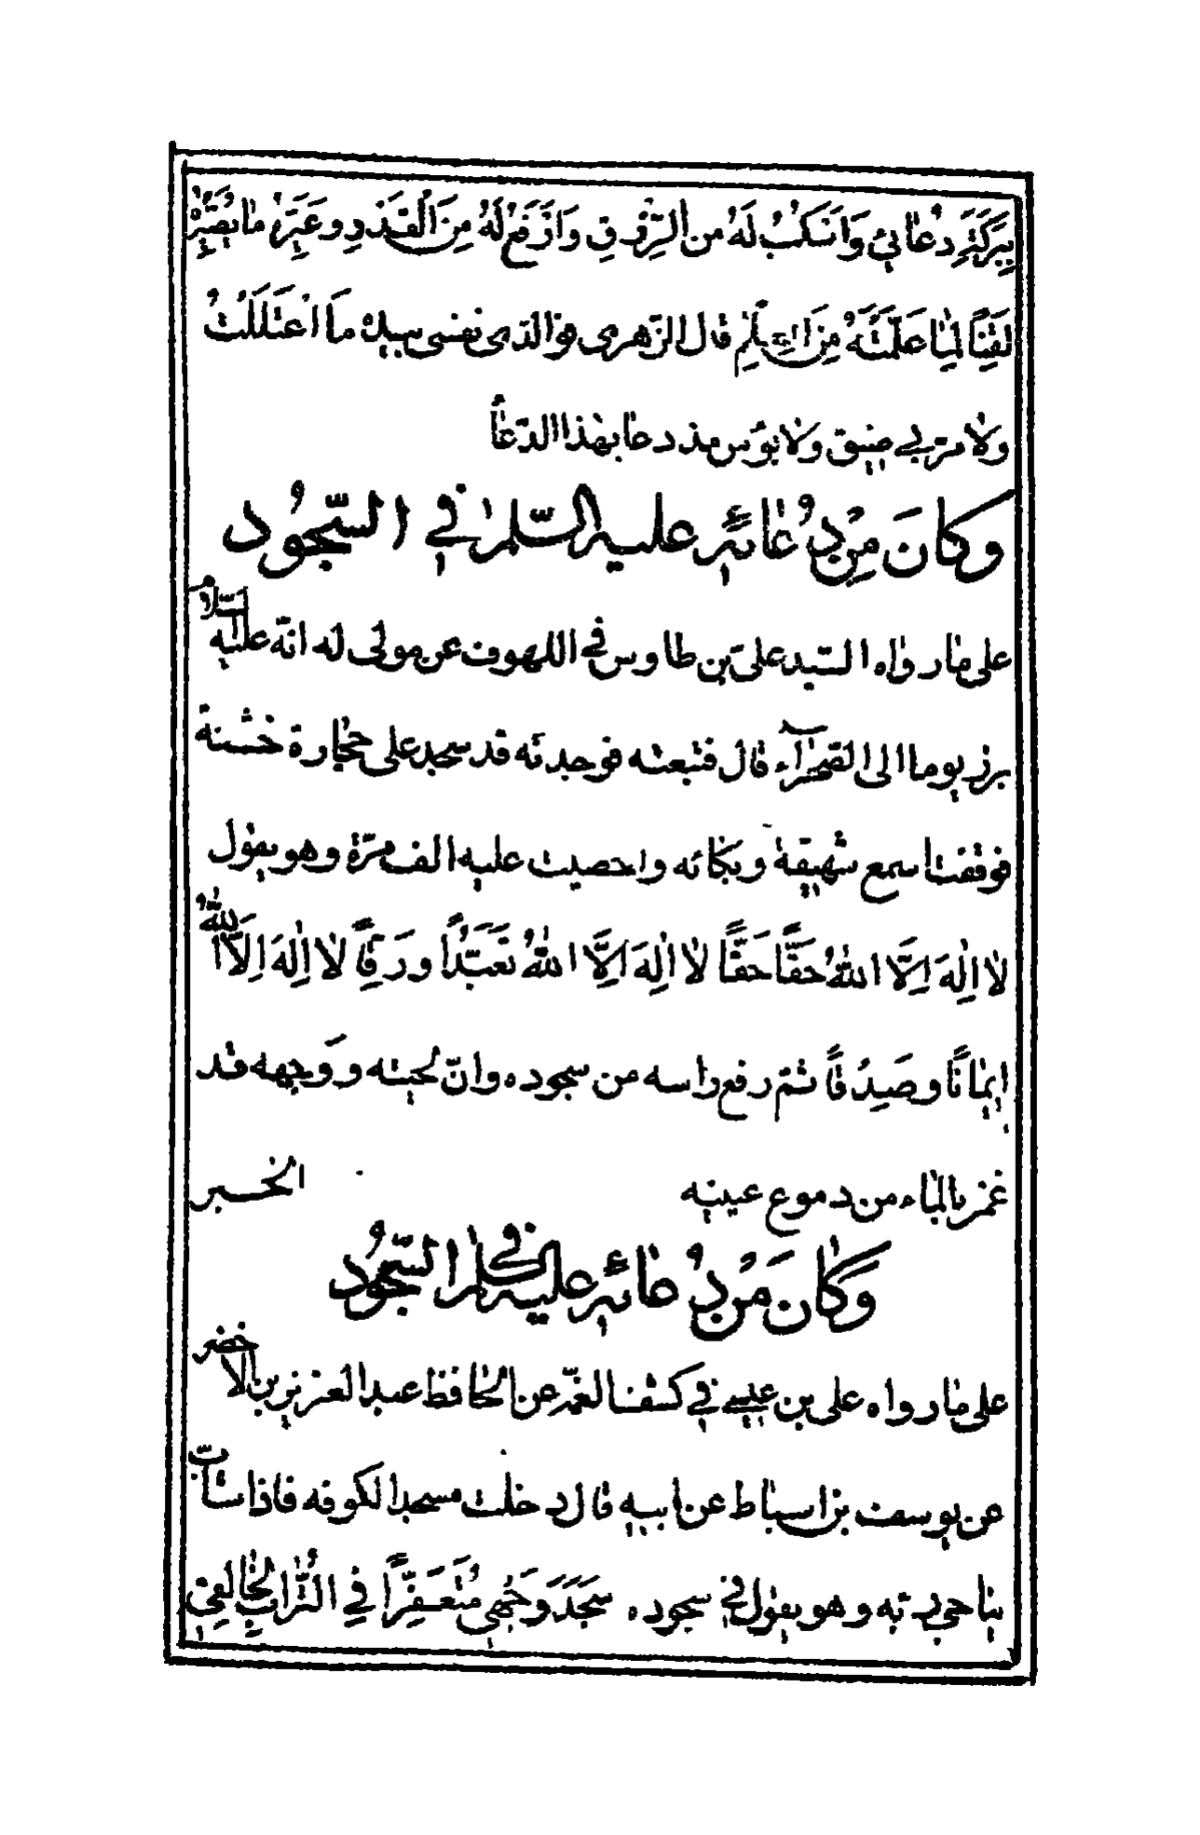 بِبَرَكَةِ دُعَائِي وَاَسْكُبُ لَهُ من الرِّزْقِ وَاَرْفَعُ لَهُ مِنَ الْقَدْرِ وغَيِّرْهُ مَا يُصَيِّرُهُ
لَقِنًا لِمَا عَلَّمْتَهُ مِنَ الْعِلْمِ قال الزهرى فو الذى نفسى بيده مَا اعْتَلَلْتُ
ولا مرّ بي ضيق ولا بؤس مذ دعا بهذا الدّعاُ
وَكانَ مِنْ دُعَائِهِ عليه السّلم في السّجُود
على ما رواه السّيد علىّ بن طاوس في اللهوف عن مولى له انّه عليه السّلام
برز يوما الى الصّحراء قال فتبعته فوجدته قد سجد على حجارة خشنة
فوقفت اسمع شهيقة وبكائه واحصيت عليه الف مرّة وهو يقول
لا اِلٰهَ اِلَّا اللهُ حَقًّا حَقًّا لا اِلٰهَ اِلَّا اللهُ تَعَبُّدًا ورَقًّا لا اِلٰهَ اِلَّا اللهُ
اِيمَانًا وصَدِْقًا ثمّ رفع راسه من سجوده وانّ لحيته ووَجهه قد
غمر بالماء من دموع عينيه الخبر
وَكَانَ مَنْ دُعائِهِ عليه السلم في السّجُود
على ما رواه على بن عيسى في كشف الغمّة عن الحافظ عبد العزيز بن الاخضر
عن يوسف بن اسباط عن ابيه قال دخلت مسجد الكوفه فاذا شابّ
يناجى ربّه وهو يقول في سجوده سَجَدَ وَجْهِي مُتَعَفِّرًا فِي التُّرَابِ لِخَالِقِي